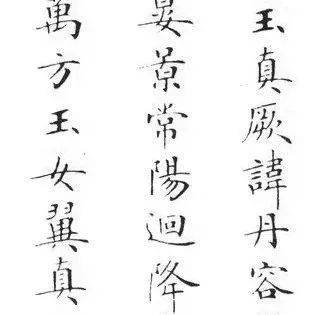 玉真厥諱丹容
晏景常陽迴降
萬方玉女翼真